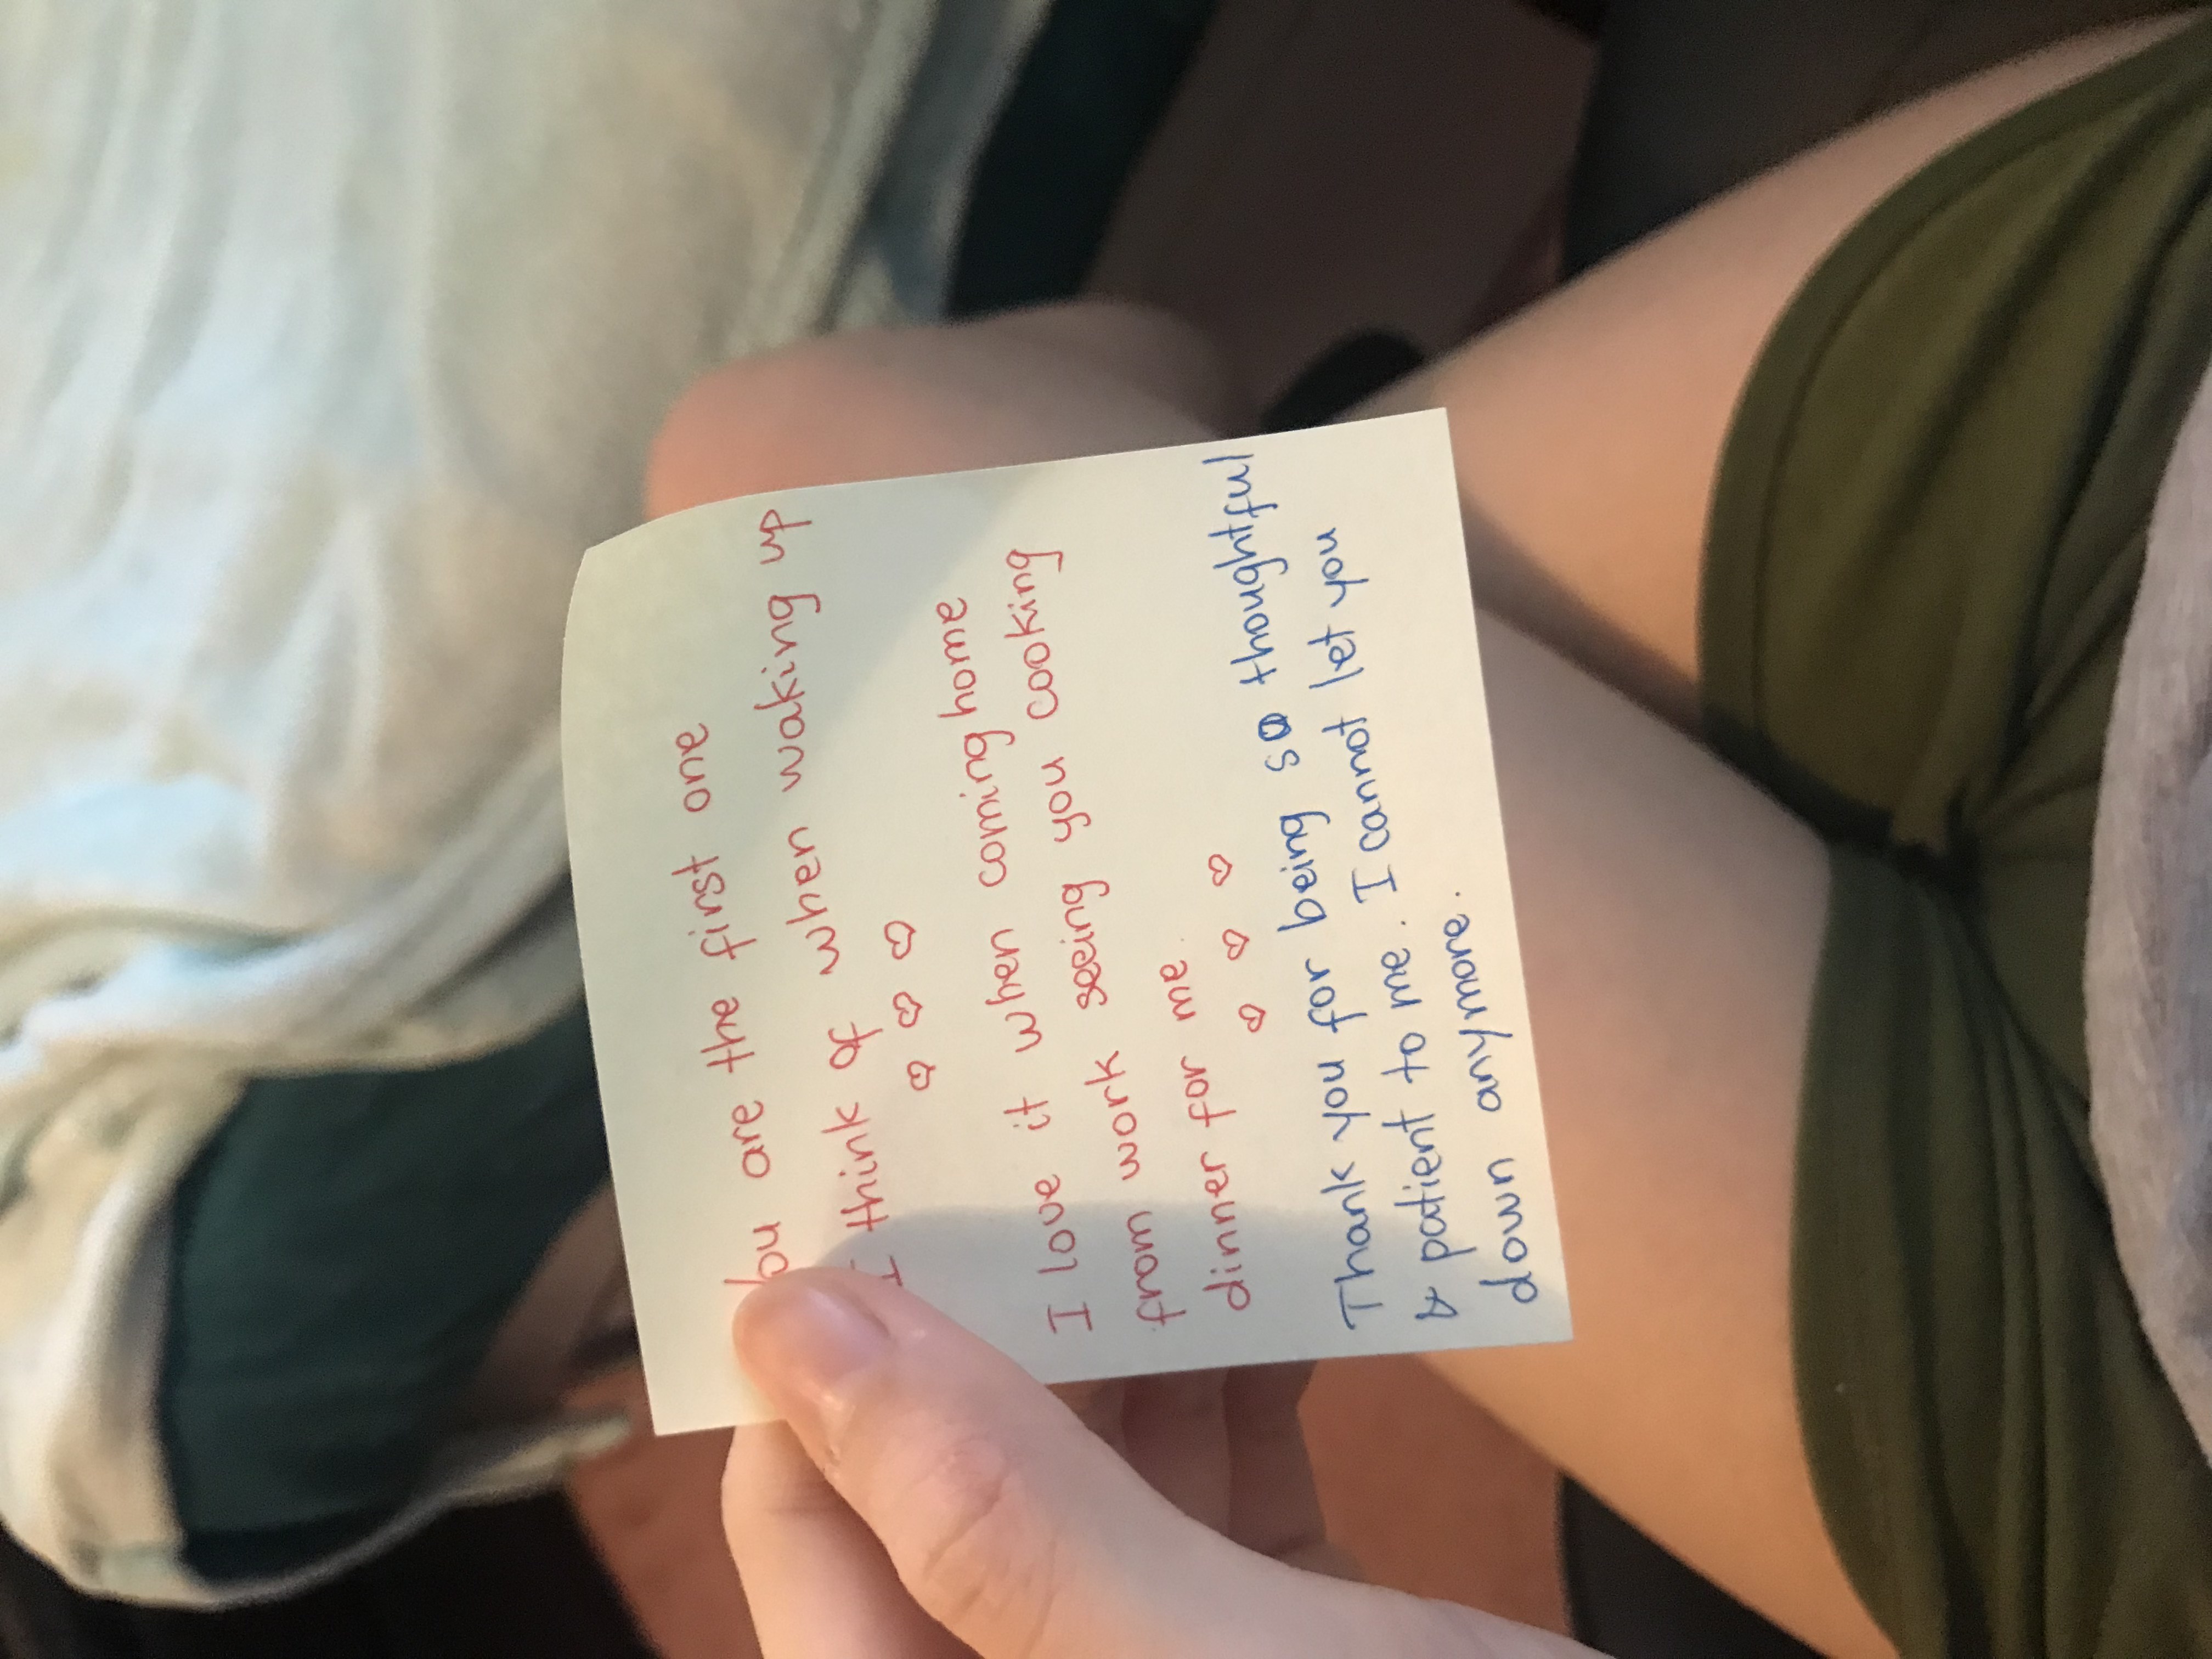 You are the first one
I think of when waking up
♡ ♡ ♡
I love it when coming home
from work seeing you cooking
dinner for me.
♡ ♡ ♡
Thank you for being so thoughtful
& patient to me. I cannot let you
down anymore.